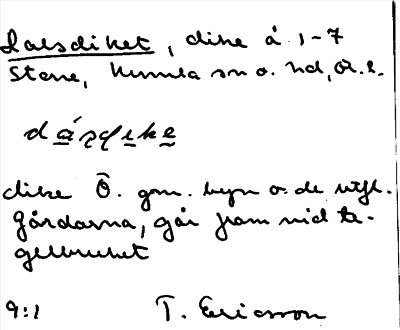 Dalsdiket, dike å 1-7
Stene, Kumla sn o. hd, Ör. l.
dike Ö. gm. byn o. de utfl.
gårdarna, går fram vid te-
gelbruket
9:1 T. Ericsson